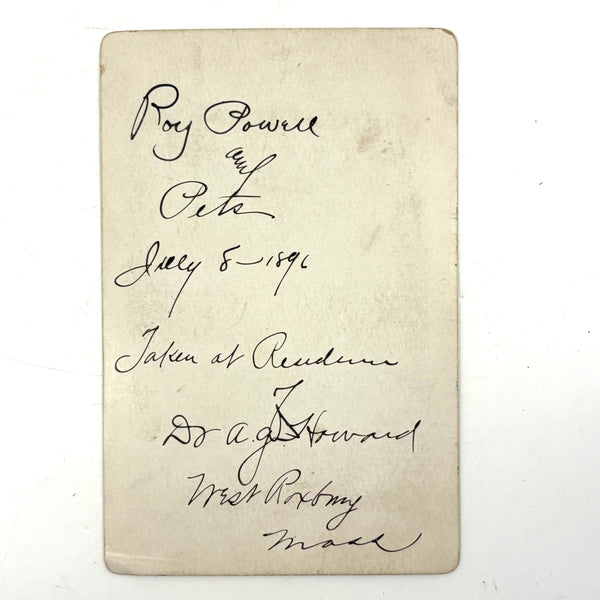 Roy Powell
and
Pets
July 8-1896
Taken at Residence
of
Dr A.G. Howard
West Roxbury
Mass